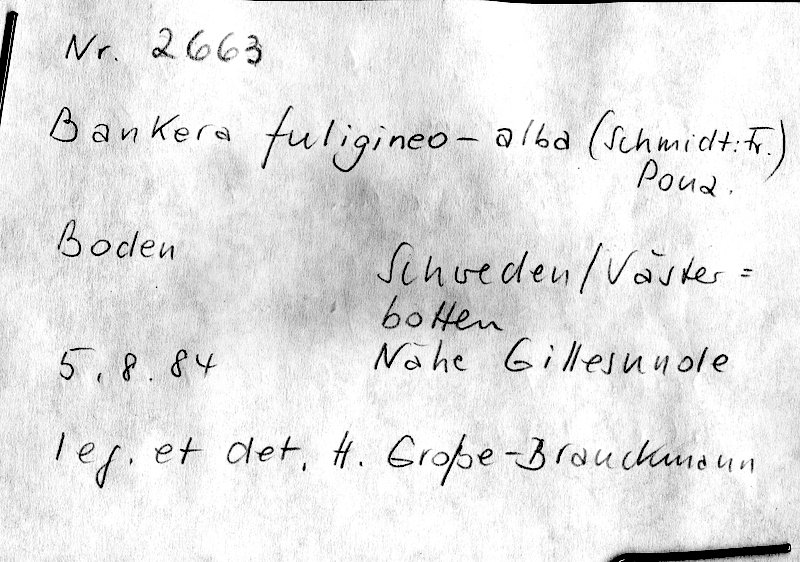 Nr. 2663
Bankera fuligineo-alba (Schmidt: Fr.)
Pouz.
Boden
Schweden/Väster=
botten
5.8.84 Nähe Gillesnuole
leg. et det. H. Große-Brauckmann